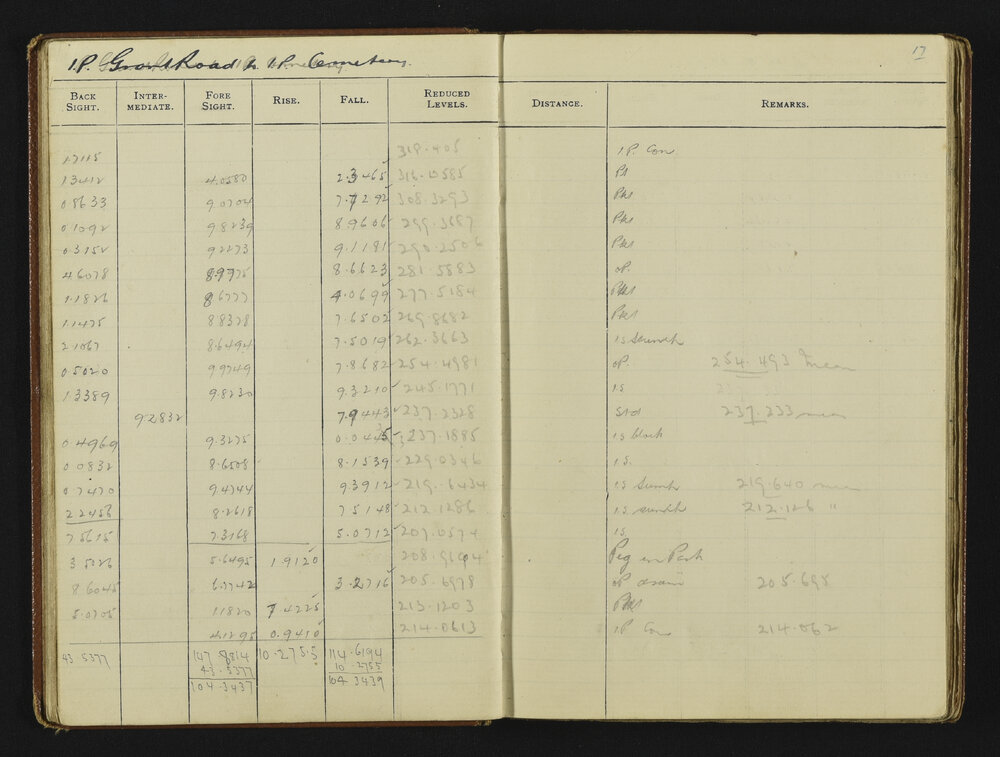 17
I.P. Grant Road to I.P. Cemetery.
BACK SIGHT. INTER-MEDIATE. FORE SIGHT. RISE. FALL. REDUCED LEVELS. DISTANCE. REMARKS.
1.7115 318.405 I.P. Con
1.3412 4.0580 2.3465 316.0585 Ps
0.8633 9.0704 7.7292 308.3293 Pks
0.1092 9.8239 8.9606 299.3687 Pks
0.3152 9.2273 9.1181 290.2506 Pks
4.6078 8.9775 8.6623 281.5883 oP.
1.1826 8.6777 4.0699 277.5184 Pks
1.1475 8.8328 7.6502 269.8682 Pks
2.1067 8.6494 7.5019 262.3663 IS
0.5020 9.9749 7.8682 254.4981 oP. 254.493 mean
1.3389 9.8230 9.3210 245.1771 IS
9.2832 7.9443 237.2328 Std 237.233 mean
0.4969 9.3275 0.0445 237.1885 IS block
0.0832 8.6508 8.1539 229.0346 IS.
0.7470 9.4744 9.3912 219.6434 IS 219.640 mean
2.2456 8.2618 7.5148 212.1286 IS 212.126 "
7.5615 7.3168 5.0712 207.0574 IS
3.5026 5.6495 1.9120 208.9694 Peg in Park
8.6045 6.7742 3.2716 205.6978 oP drain 205.698
5.0705 1.1820 7.4225 213.1203 Pks
4.1295 0.9410 214.0613 I.P. Con 214.062
43.5377 147.8814 10.2755 114.6194
43.5377 10.2755
104.3437 104.3439